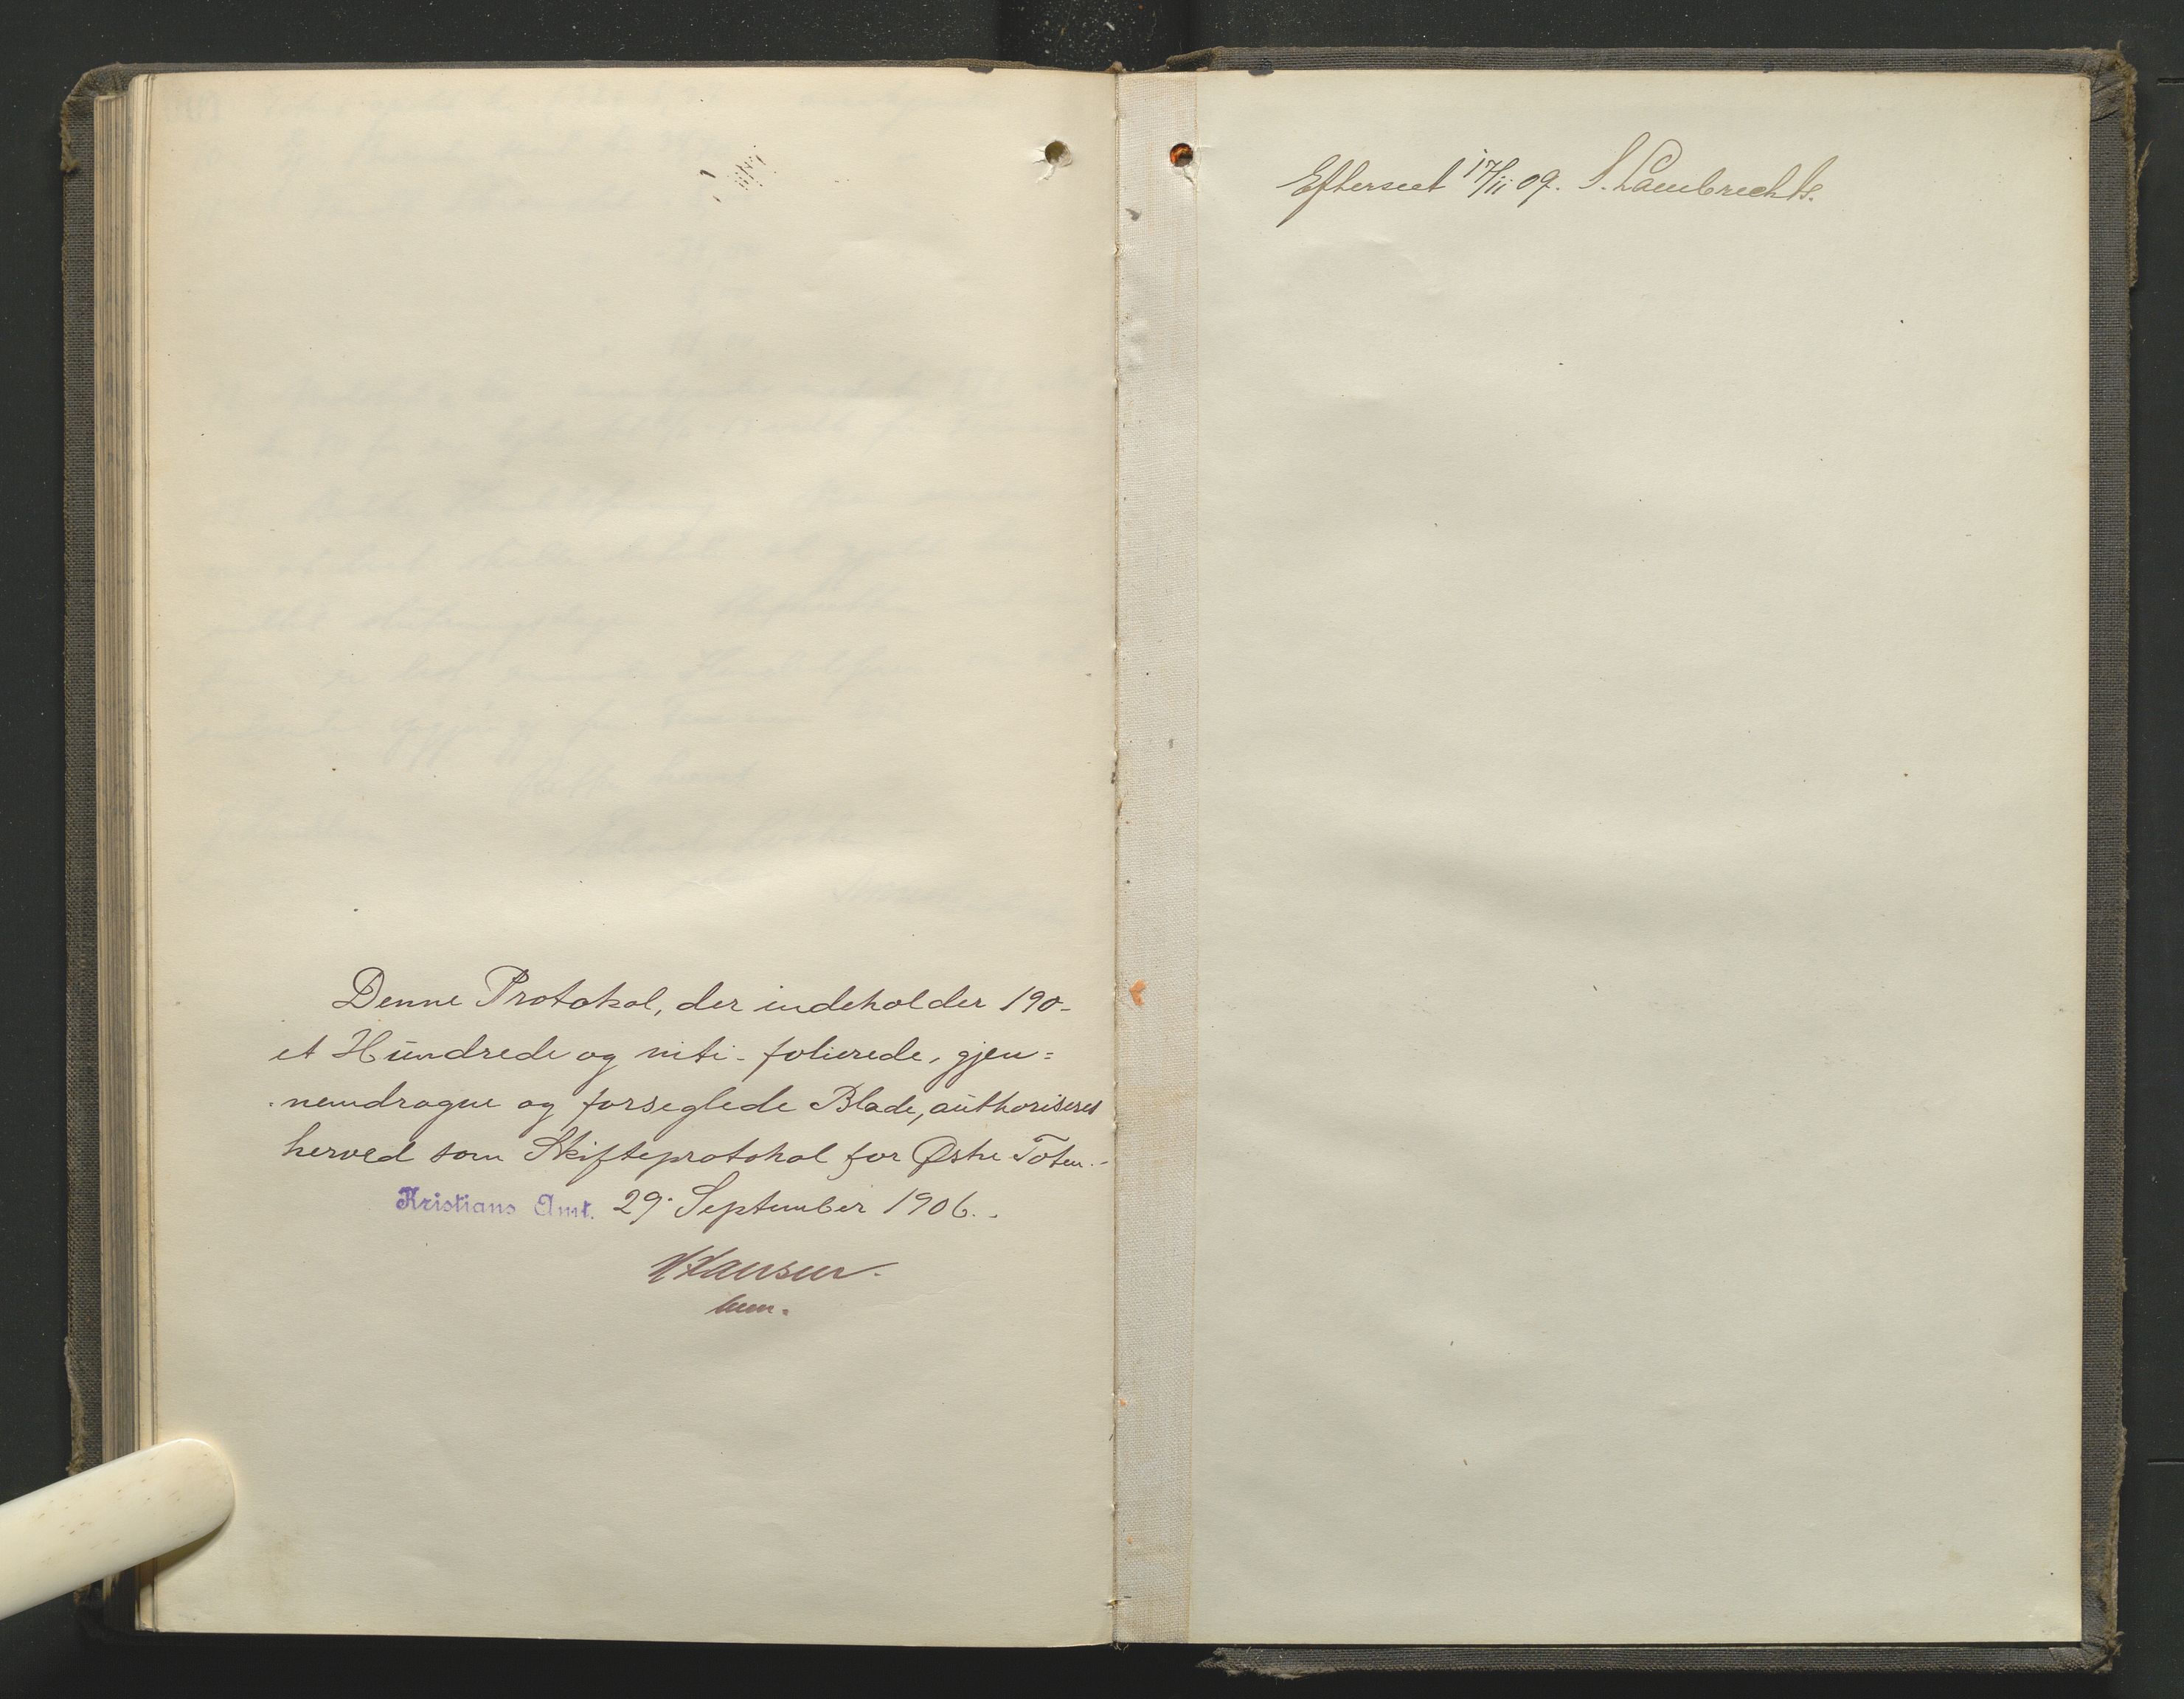 Denne Protokol, der indeholder 190-
et Hundrede og niti - folierede, gjen=
nemdragne og forseglede Blade, authoriseres
herved som Skifteprotokol for Østre Toten.-
Kristians Amt. 29. September 1906.
Hansen.
Efterseet 17/11 09. S. Lambrechts.